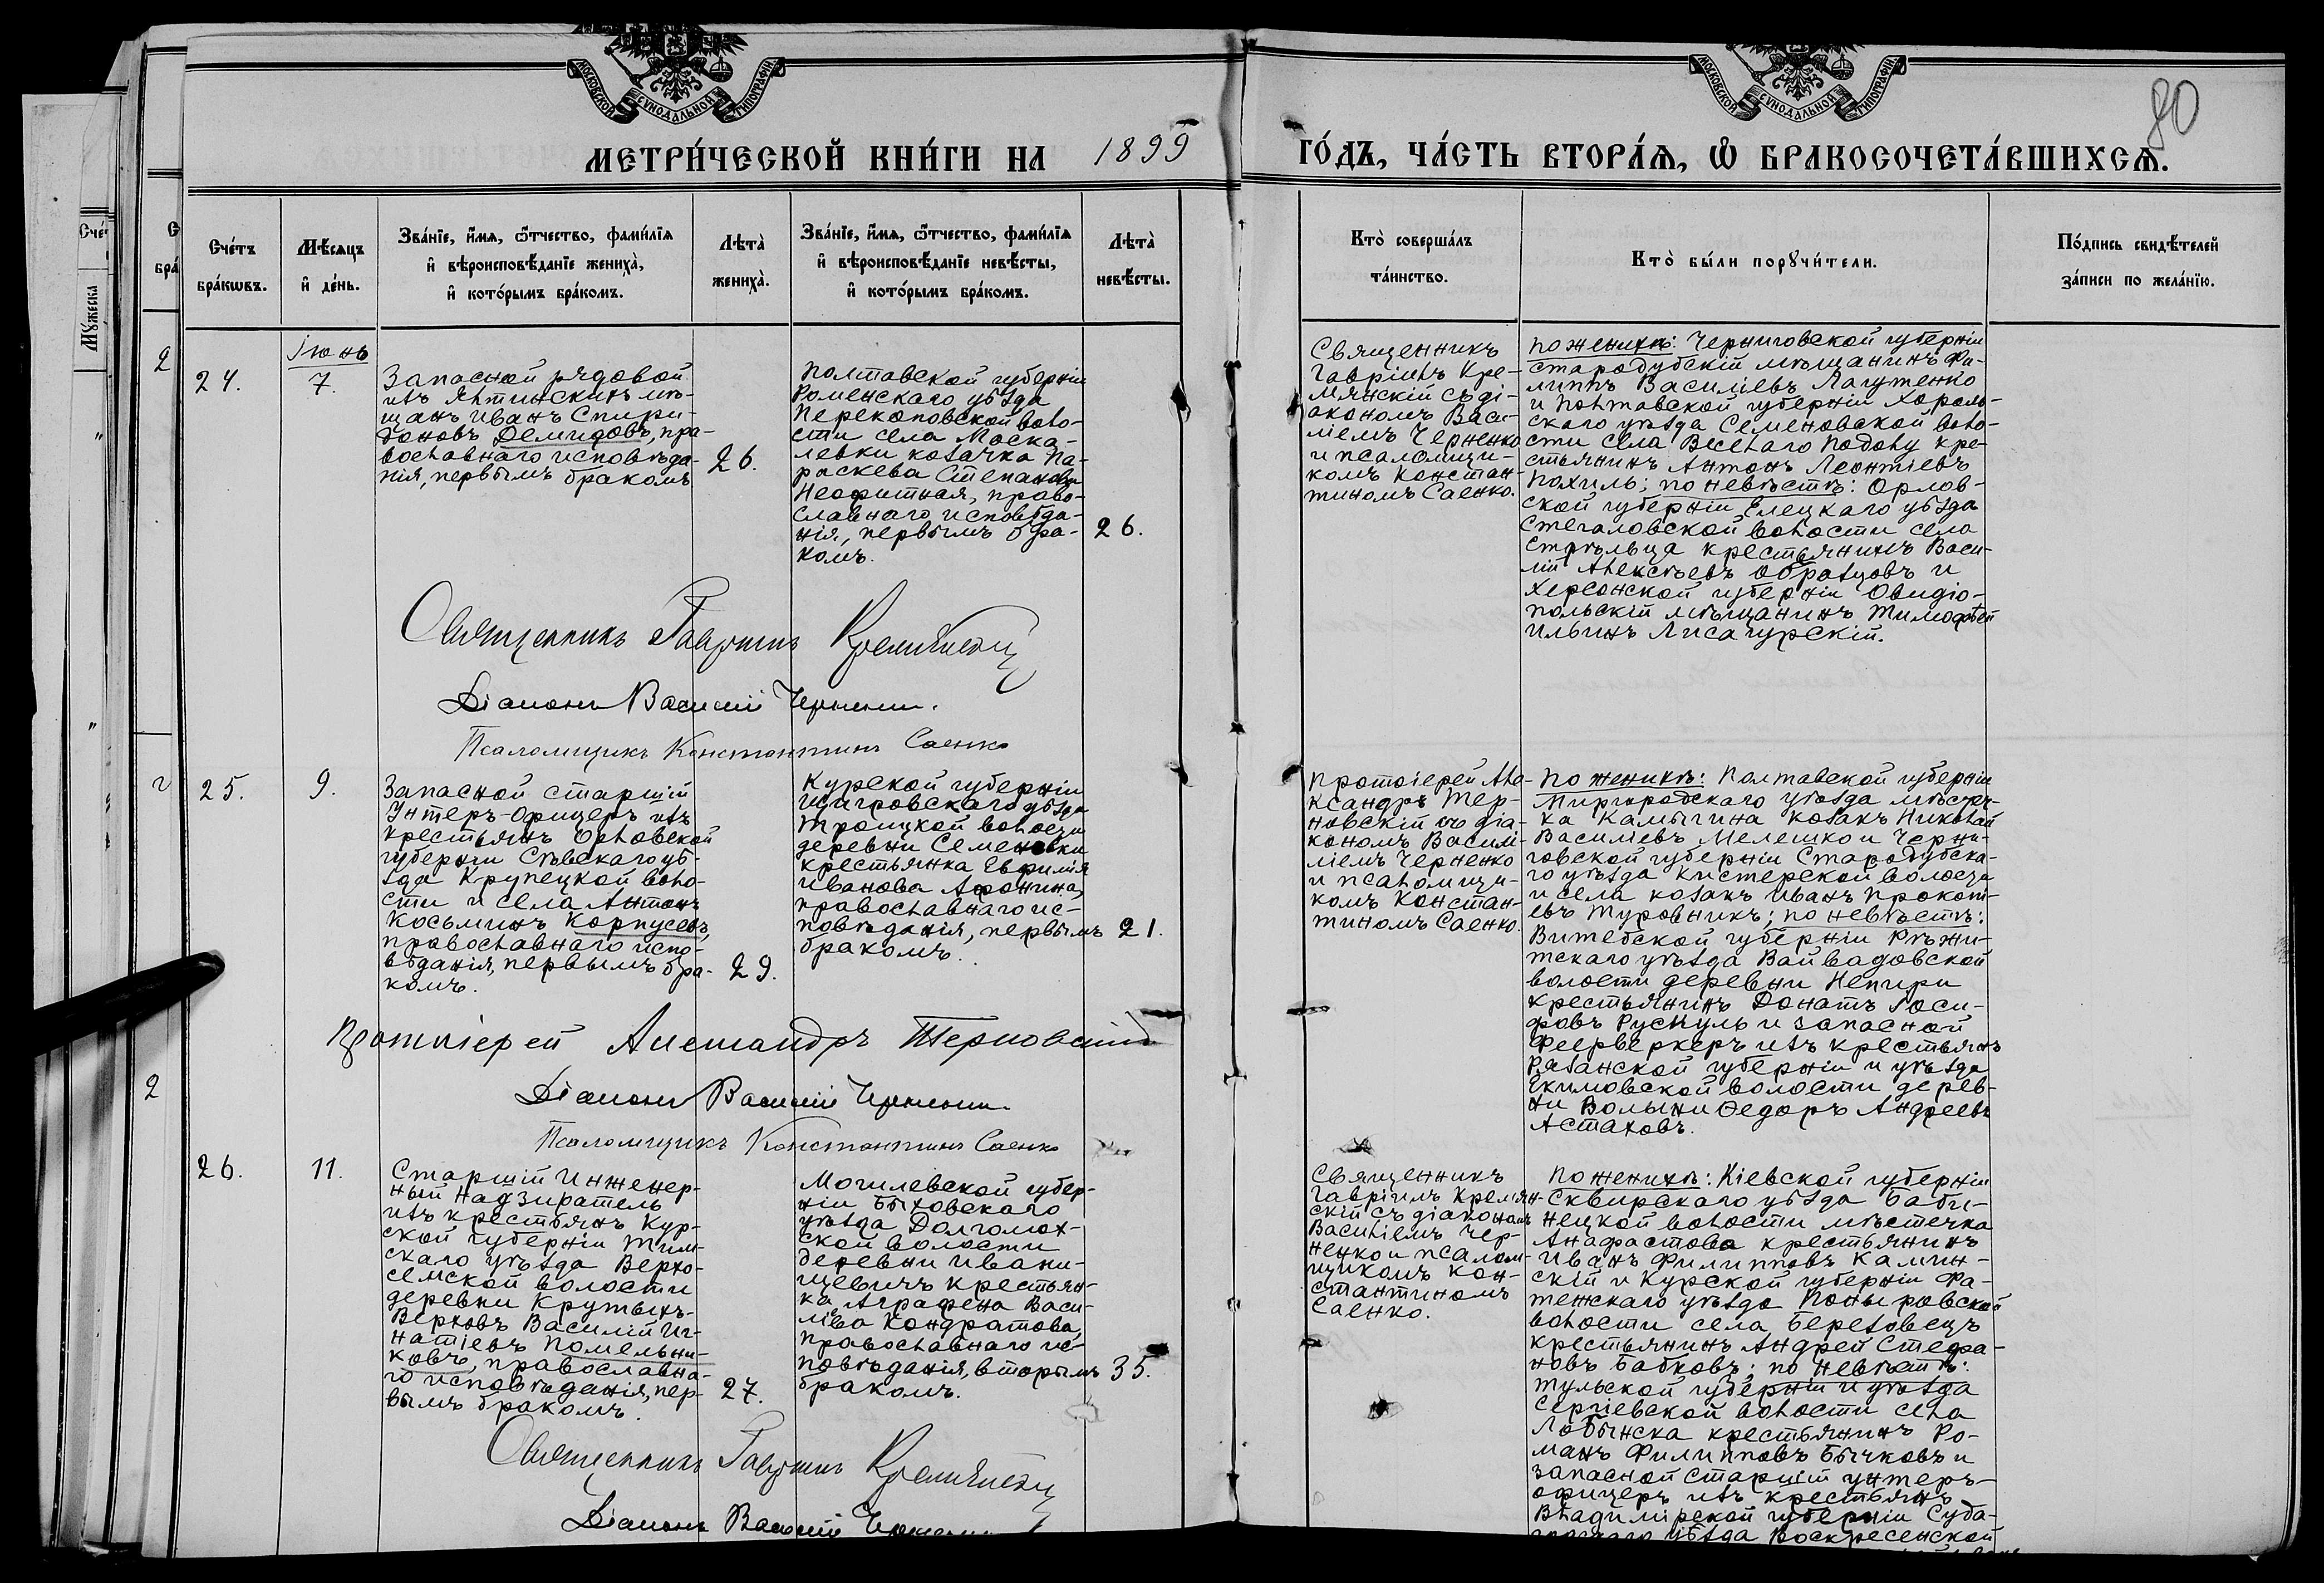 МОСКОВСКОЙ СѴНОДАЛЬНОЙ ТИПОГРАФІИ
МОСКОВСКОЙ СѴНОДАЛЬНОЙ ТИПОГРАФІИ
80
МЕТРИ́ЧЕСКОЙ КНИ́ГИ НА 1899 ГО́ДЪ, ЧА́СТЬ ВТОРА́Я, Ѡ БРАКОСОЧЕТА́ВШИХСЯ.
Сче́тъ
бра́кѡвъ.
Мѣ́сяцъ
и҆ де́нь.
Зва́нїе, и҆́мя, ѻ҆́тчество, фами́лїя
и҆ вѣроисповѣ́данїе жениха̀,
и҆ кото́рымъ бра́комъ.
Лѣта̀
жениха̀.
Зва́нїе, и҆́мя, ѻ҆́тчество, фами́лїя
и҆ вѣроисповѣ́данїе невѣ́сты,
и҆ кото́рымъ бра́комъ.
Лѣта̀
невѣ́сты.
Кто̀ соверша́лъ
та́инство.
Кто̀ бы́ли порꙋчи́тели.
По́дпись свидѣ́телей
за́писи по жела́нїю.
Іюнь
24.
7.
Запасной рядовой
изъ Ялтинскихъ мѣ-
щанъ Иванъ Спири-
доновъ Демидовъ, пра-
вославнаго исповѣда-
нія, первымъ бракомъ
26.
Полтавской губерніи
Роменскаго уѣзда
Перекоповской воло-
сти села Моска-
левки козачка Па-
раскева Степанова
Неофитная, право-
славнаго исповѣда-
нія, первымъ бра-
комъ.
26.
Священникъ
Гавріилъ Кре-
мянскій съ ді-
акономъ Васи-
ліемъ Черненко
и псаломщи-
комъ Констан-
тиномъ Саенко.
по женихѣ: Черниговской губерніи
стародубскій мѣщанинъ Фи-
липпъ Василіевъ Лагутенко
и Полтавской губерніи Хороль-
скаго уѣзда Семеновской воло-
сти села Веселаго Подолу кре-
стьянинъ Антонъ Леонтіевъ
Похиль; по невѣстѣ: Орлов-
ской губерніи Елецкаго уѣзда
Стегаловской волости села
Стрѣльца крестьянинъ Васи-
лій Алексѣевъ Образцовъ и
Херсонской губерніи Овидіо-
польскій мѣщанинъ Тимофѣй
Ильинъ Лисагурскій.
Священникъ Гавріилъ Кремянскій
Діаконъ Василій Черненко.
Псаломщикъ Константинъ Саенко
25.
9.
Запасной старшій
Унтеръ-Офицеръ изъ
крестьянъ Орловской
губерніи Сѣвскаго уѣ-
зда Крупецкой воло-
сти и села Антонъ
Косьминъ Корпусевъ,
православнаго испо-
вѣданія, первымъ бра-
комъ.
29.
Курской губерніи
Щигровскаго уѣзда
Троицкой волости
деревни Семеновки
крестьянка Евфимія
Иванова Афонина,
православнаго ис-
повѣданія, первымъ
бракомъ.
21.
Протоіерей Але-
ксандръ Тер-
новскій съ діа-
кономъ Васи-
ліемъ Черненко
и псаломщи-
комъ Констан-
тиномъ Саенко.
По женихѣ: Полтавской губерніи
Миргородскаго уѣзда мѣстеч-
ка Камышна козакъ Николай
Василіевъ Мелешко и Черни-
говской губерніи Стародубска-
го уѣзда Кистерской волости
и села козакъ Иванъ Прокопі-
евъ Туровникъ; по невѣстѣ:
Витебской губерніи Рѣжи-
тскаго уѣзда Вайвадовской
волости деревни Непири
крестьянинъ Донатъ Іоси-
фовъ Рускуль и запасной
Феерверкеръ изъ крестьянъ
Рязанской губерніи и уѣзда
Екимовской волости дерев-
ни Волыни Ѳедоръ Андреевъ
Астаховъ.
Протоіерей Александръ Терновскій
Діаконъ Василій Черненко.
Псаломщикъ Константинъ Саенко
26.
11.
Старшій Инженер-
ный надзиратель
изъ крестьянъ Кур-
ской губерніи Тим-
скаго уѣзда Верхо-
семской волости
деревни Крутыхъ-
Верховъ Василій Иг-
натіевъ Помельни-
ковъ, православна-
го исповѣданія, пер-
вымъ бракомъ.
27.
Могилевской губер-
ніи Быховскаго
уѣзда Долгомох-
ской волости
деревни Ивани-
щевичъ крестьян-
ка Аграфена Васи-
ліева Кондратова,
православнаго ис-
повѣданія, вторымъ
бракомъ.
35.
Священникъ
Гавріилъ Кремян-
скій съ діакономъ
Василіемъ Чер-
ненко и псалом-
щикомъ Кон-
стантиномъ
Саенко.
По женихѣ: Кіевской губерніи
Сквирскаго уѣзда Баби-
нецкой волости мѣстечка
Анафастова крестьянинъ
Иванъ Филипповъ Камин-
скій и Курской губерніи Фа-
тежскаго уѣзда Поныровской
волости села Березовецъ
крестьянинъ Андрей Стефа-
новъ Бабковъ; по невѣстѣ:
Тульской губерніи и уѣзда
Сергіевской волости села
Лобынска крестьянинъ Ро-
манъ Филипповъ Бычковъ и
запасной старшій унтеръ-
офицеръ изъ крестьянъ
Владимірской губерніи Суз-
уѣзда Воскресенской
Священникъ Гавріилъ Кремянскій
Діаконъ Василій Черненко